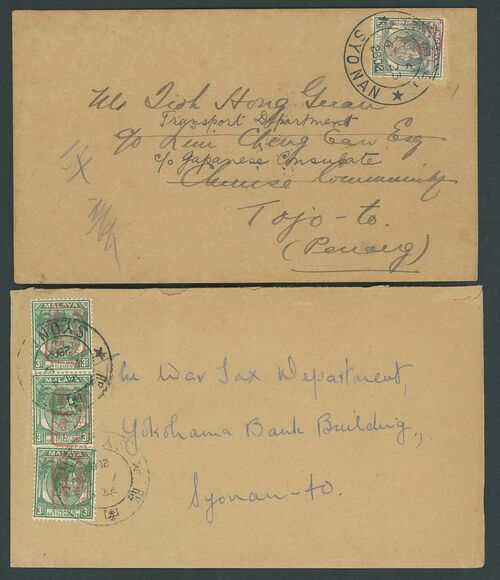 MALAYA
SYONAN
2602
Mr Tioh Hong Guan
Transport Department
c/o Lim Cheng Ean Esq
c/o Japanese Consulate
Chinese Community
Tojo-to
(Penang)
MALAYA
SYON
MALAYA
MALAYA
The War Tax Department,
Yokohama Bank Building,
Syonan-to.